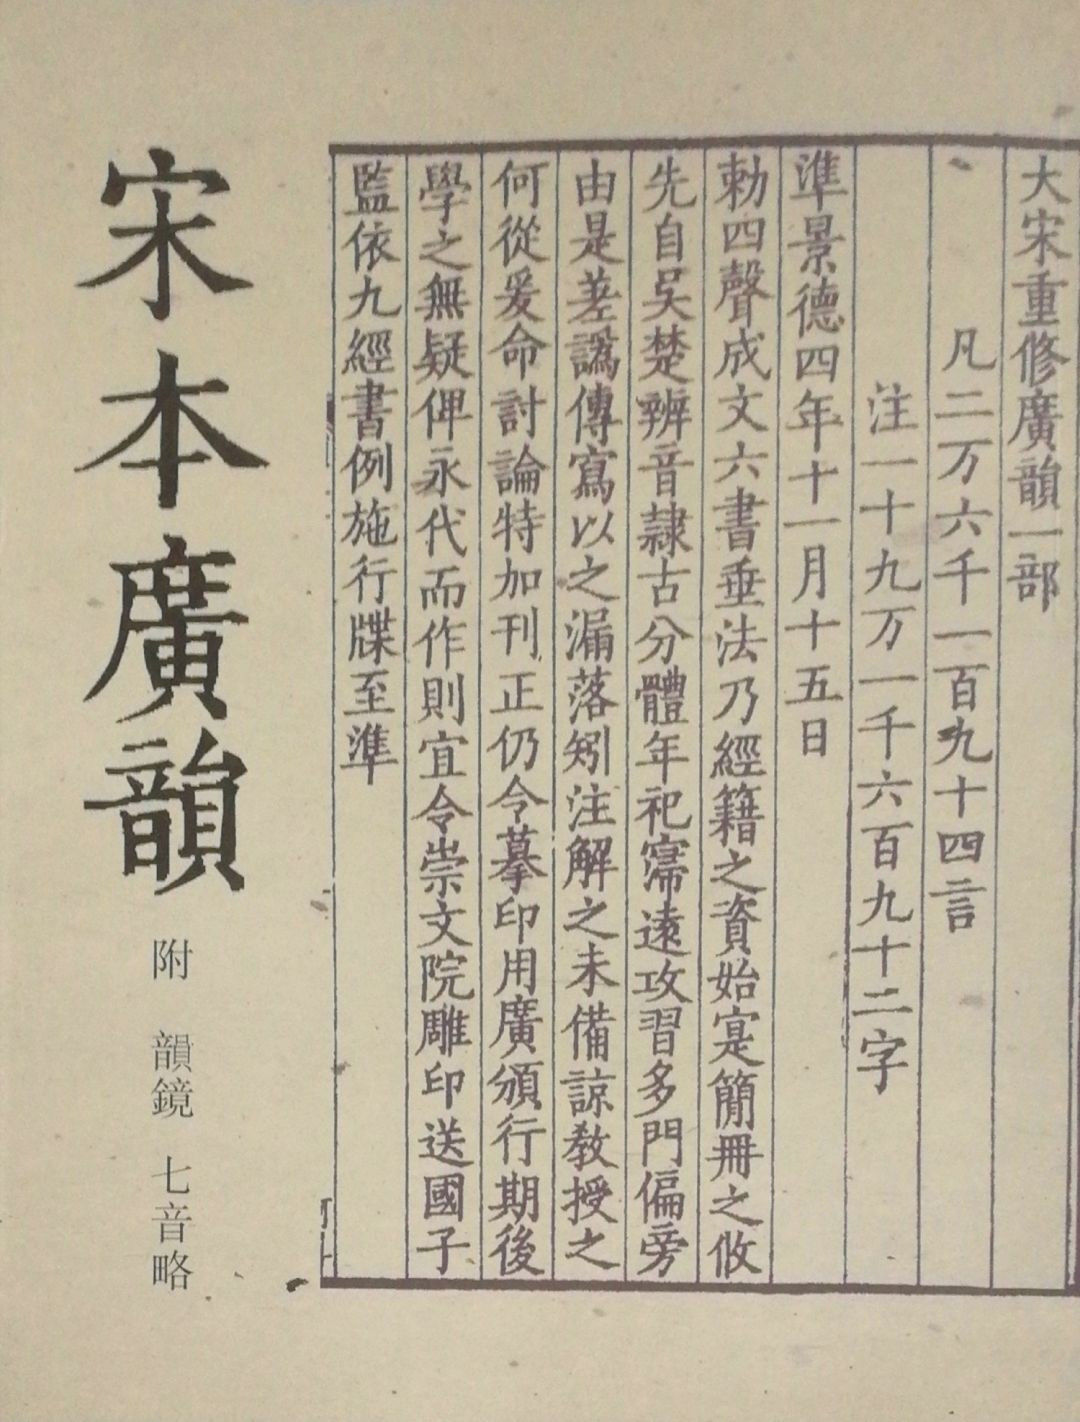 大宋重修廣韻一部
凡二万六千一百九十四言
注一十九万一千六百九十二字
準景德四年十一月十五日
勑四聲成文六書垂法乃經籍之資始寔簡冊之攸
先自吳楚辨音隷古分體年祀寖遠攻習多門偏旁
由是差譌傳寫以之漏落矧注解之未備諒敎授之
何從爰命討論特加刊正仍令摹印用廣頒行期後
學之無疑俾永代而作則宜令崇文院雕印送國子
監依九經書例施行牒至準
宋本廣韻
附 韻鏡 七音略